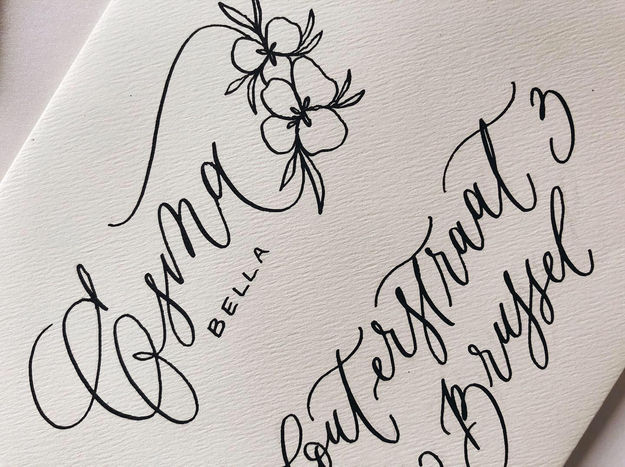 Esma
BELLA
outerstraat 3
Brussel